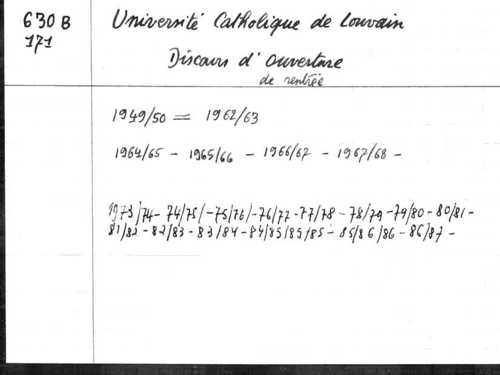 630 B
171
Université Catholique de Louvain
Discours d'ouverture
de rentrée
1949/50 = 1962/63
1964/65 - 1965/66 - 1966/67 - 1967/68 -
1973/74 - 74/75/-75/76/-76/77-77/78 - 78/79 - 79/80 - 80/81 -
81/82 - 82/83 - 83/84 - 84/85/85/85 - 85/86/86 - 86/87 -